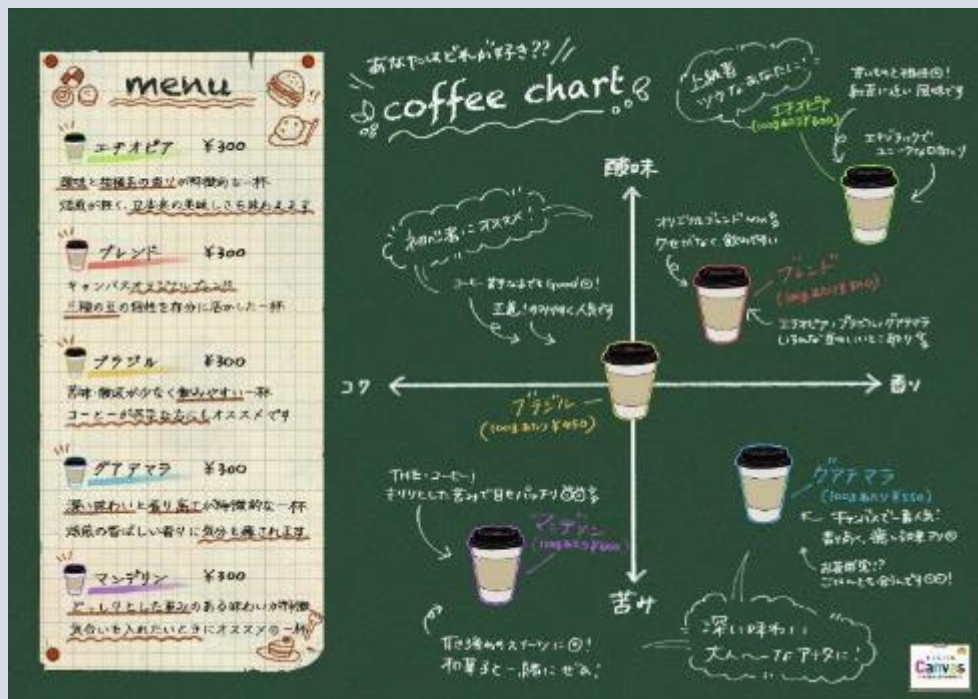 menu
エチオピア ¥300
酸味と柑橘系の香りが特徴的な一杯
焙煎が軽く、豆本来の美味しさを味わえます
ブレンド ¥300
キャンバスオリジナルブレンド
三種の豆の個性を存分に活かした一杯
ブラジル ¥300
苦味・酸味が少なく飲みやすい一杯
コーヒーが苦手な方にもオススメです
グアテマラ ¥300
深い味わいと香り高さが特徴的な一杯
焙煎の香ばしい香りに気分も癒されます
マンデリン ¥300
どっしりとした重みのある味わいが特徴
気合いを入れたいときにオススメの一杯
あなたはどれが好き??
coffee chart
酸味
苦み
コク
香り
上級者
ツウなあなたに
エチオピア
(100gあたり¥600)
エキゾチックで
ユニークな口当たり
オリジナルブレンド
クセがなく飲みやすい
ブレンド
エチオピア・ブラジル・グアテマラ
初心者にオススメ!
ブラジル
(100gあたり¥450)
THE・コーヒー!
キリリとした苦みで目もパッチリ
マンデリン
(100gあたり¥600)
和菓子と一緒にぜひ!
グアテマラ
(100gあたり¥550)
キャンバスで一番人気!
深い味わい
大人〜なアナタに!
Canvas